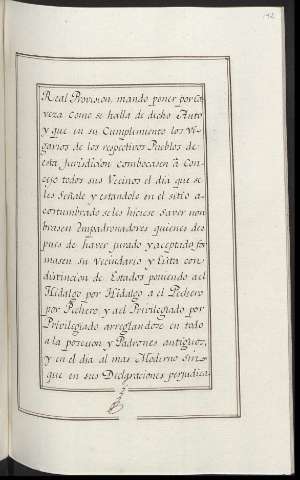 Real Provision, mando poner por Ca
veza como se halla de dicho Auto
y que en su Cumplimiento los Vi-
garios de los respectivos Pueblos de
esta Jurisdicion combocasen à Con-
cejo todos sus Vecinos el dia que se
les Señale y estandolo en el sitio a-
costumbrado se les hiciese saver nom
brasen Empadronadores quienes des
pues de haver jurado y aceptado, for
masen su Vecindario y Lista con
distincion de Estados poniendo ael
Hidalgo por Hidalgo a el Pechero
por Pechero, y ael Privilegiado por
Privilegiado arreglandose en todo
a la posesion y Padrones antiguos,
y en el dia al mas Moderno sin-
que en sus Declaraciones perjudica